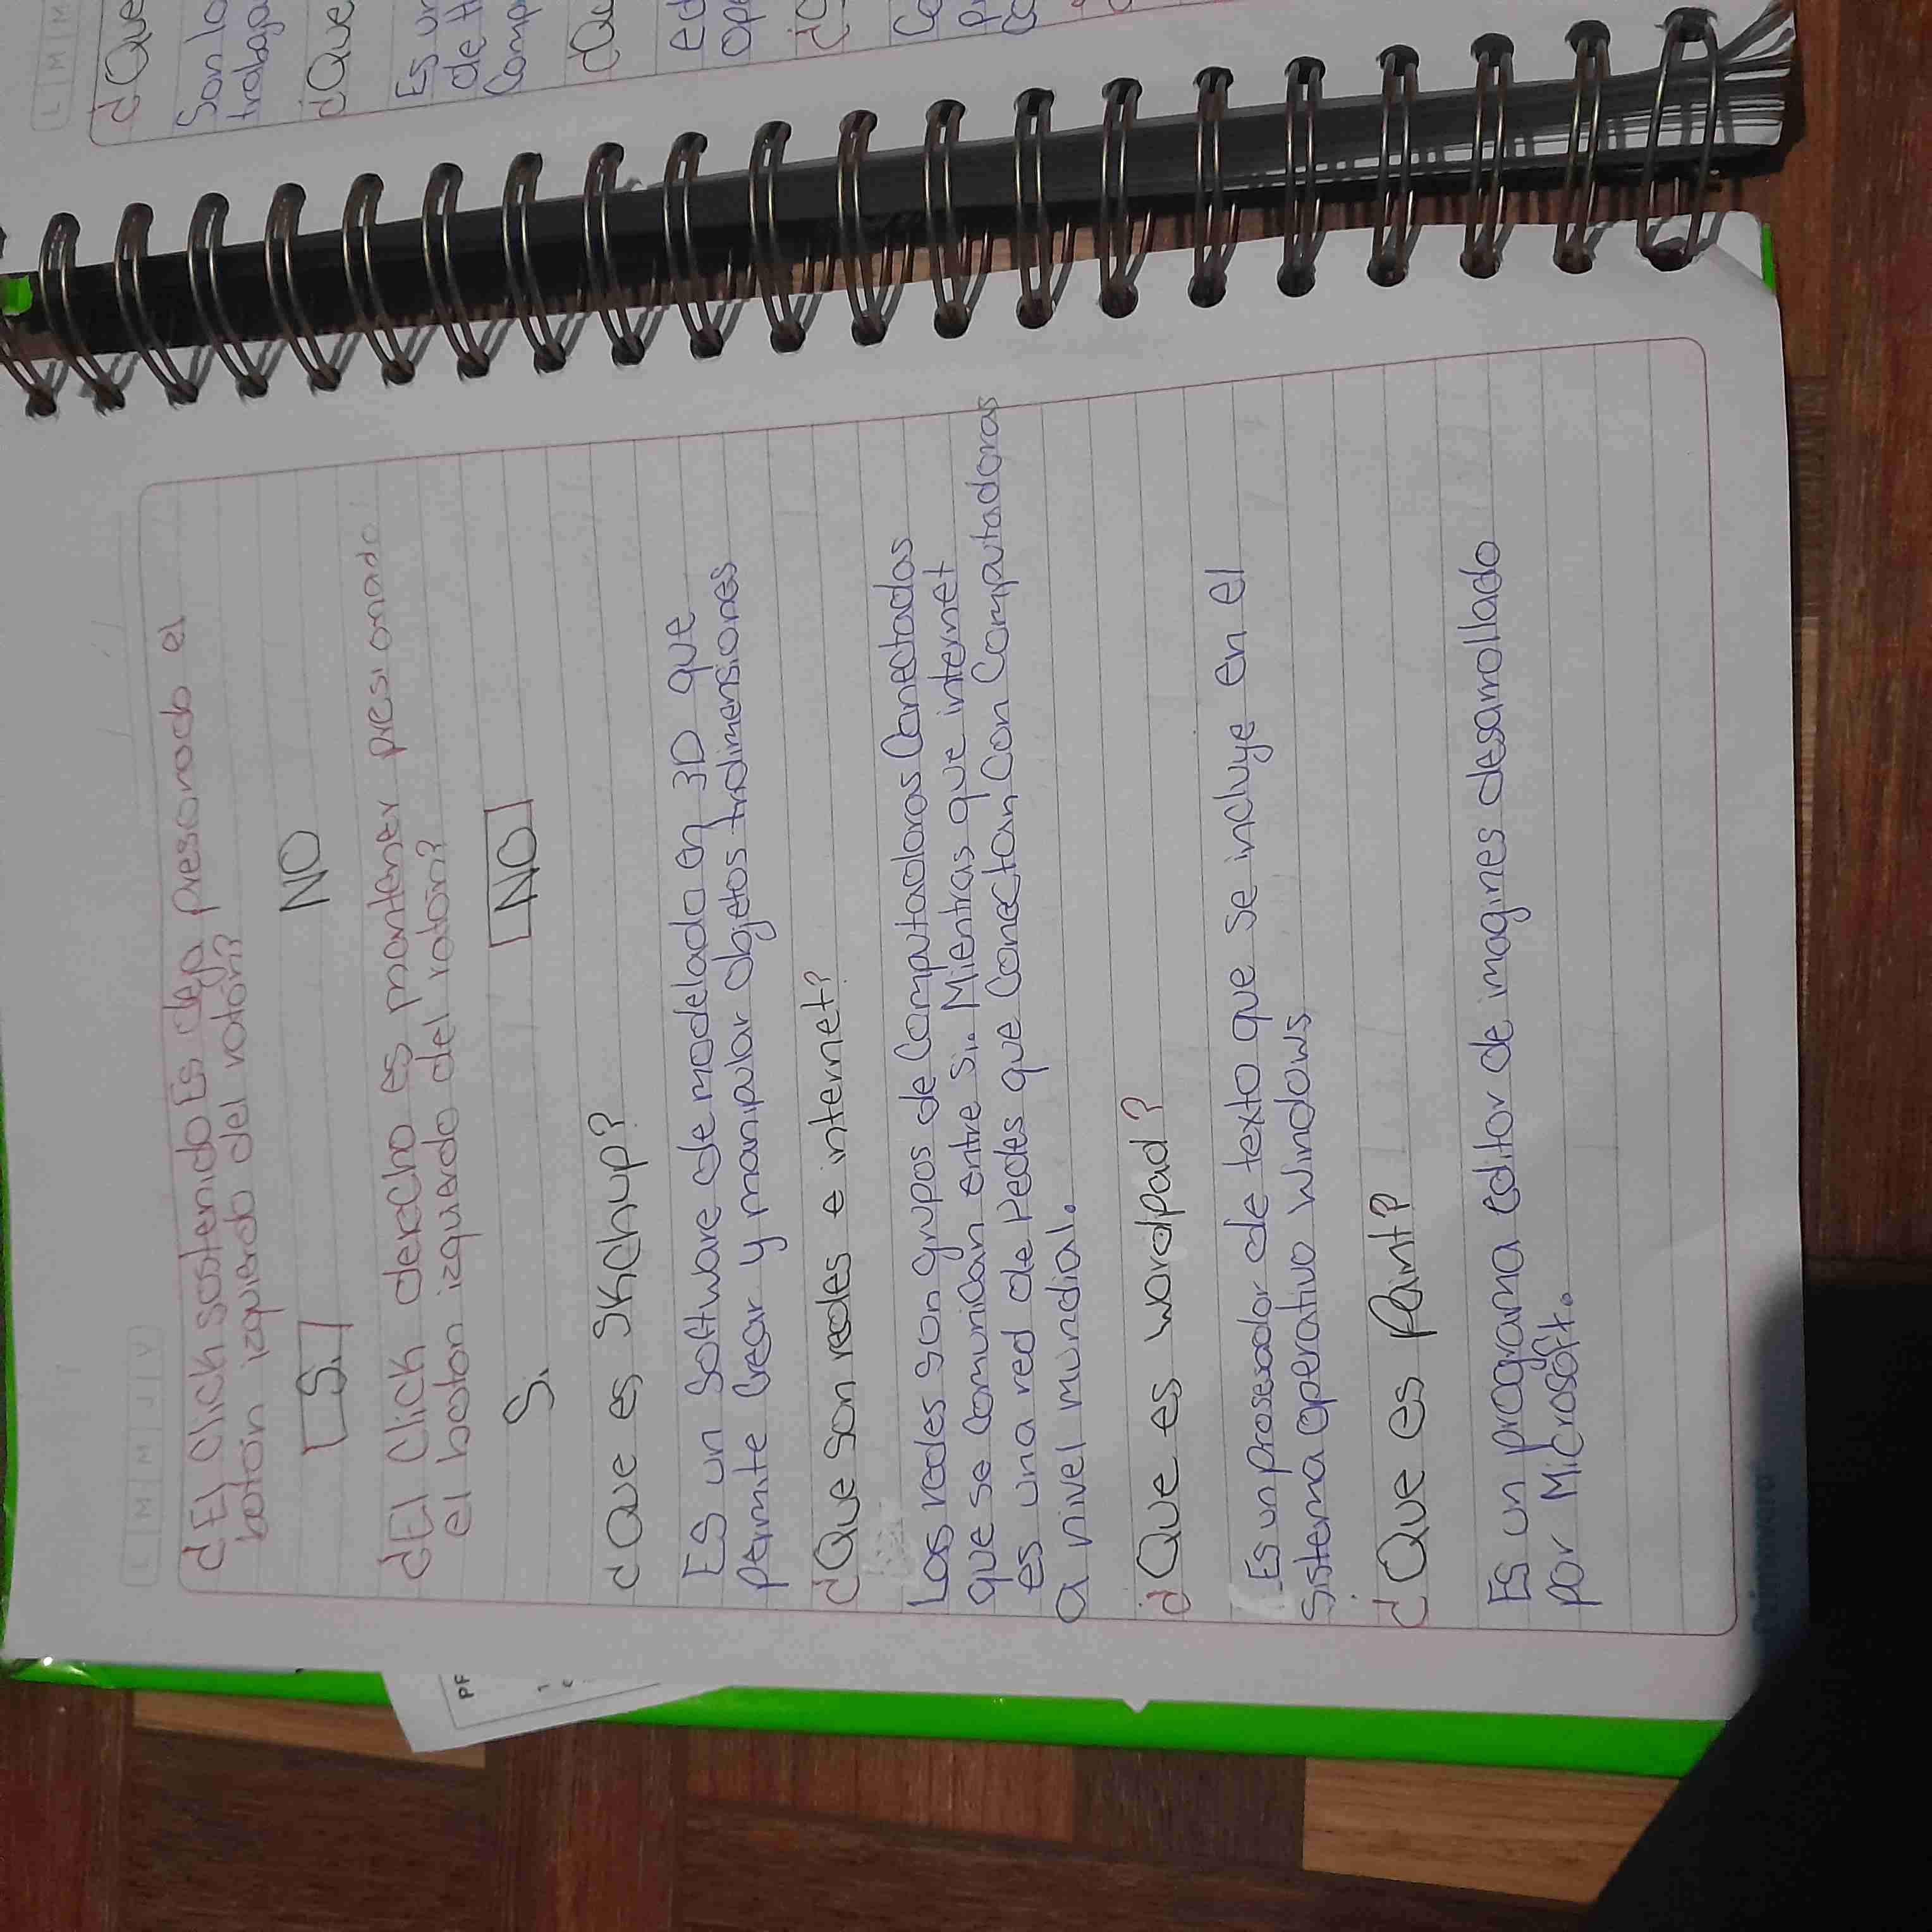 L M M J V
¿El Click sostenido Es deja presonado el
botón izquierdo del ratón?
Si NO
¿El Click derecho es mantener presionado
el boton izquerdo del ratón?
Si NO
¿Que es SKhchup?
Es un Software de modelado en 3D que
permite Crear y manipular objetos tridimensiones
¿Que son redes e internet?
Las redes son grupos de Computadoras Conectadas
que se Comunican entre si. Mientras que internet
es una red de redes que Conectan Con Computadoras
a nivel mundial.
¿Que es wordpad?
Es un prosesador de texto que se incluye en el
Sistema operativo Windows
¿Que es Paint?
Es un programa editor de imagines desarrollado
por Microsoft.
L M M
¿Que
Son lo
trabaja
¿Que
Es un
de H
Comp
¿Qu
Ed
Ope
PF
1